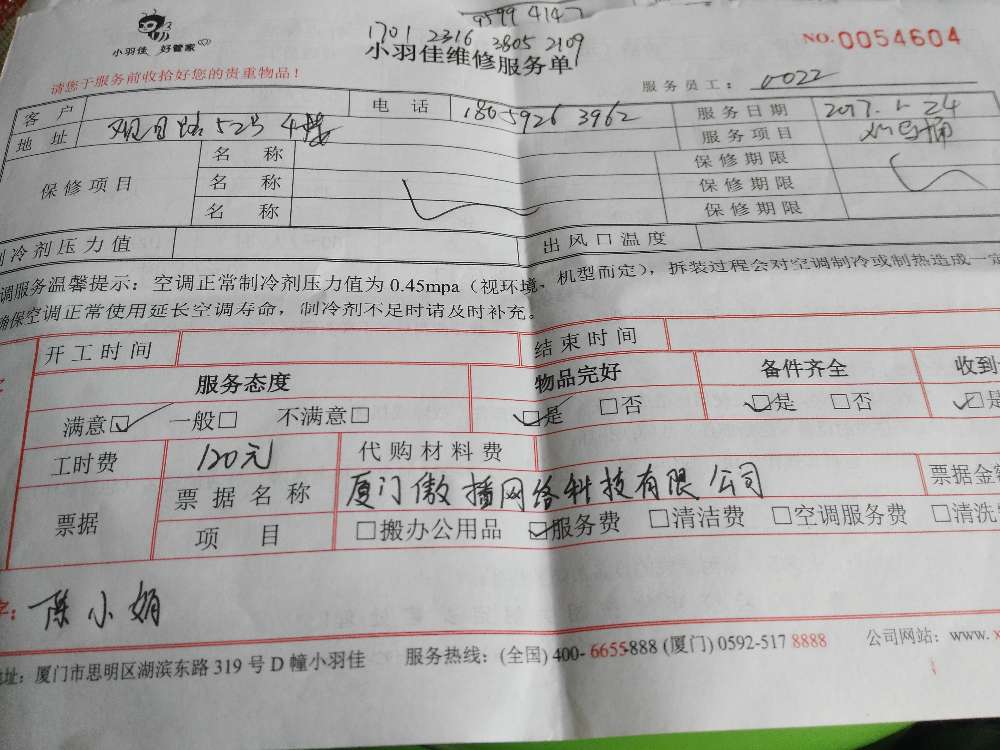 9599 4147
1701 2316 3805 2109
小羽佳 好管家
小羽佳维修服务单
NO.0054604
请您于服务前收拾好您的贵重物品！
服务员工： 0022
客户 电话 1805926 3962 服务日期 2017. 24
地址 路52号4楼 服务项目 马桶
保修项目 名称 保修期限
名称 保修期限
名称 保修期限
制冷剂压力值 出风口温度
调服务温馨提示：空调正常制冷剂压力值为0.45mpa（视环境、机型而定），拆装过程会对空调制冷或制热造成一定
确保空调正常使用延长空调寿命，制冷剂不足时请及时补充。
开工时间 结束时间
服务态度 物品完好 备件齐全 收到
满意☑ 一般□ 不满意□ ☑是 □否 ☑是 □否 ☑是
工时费 120元 代购材料费
票据 票据名称 厦门傲播网络科技有限公司 票据金额
项目 □搬办公用品 ☑服务费 □清洁费 □空调服务费 □清洗
字： 陈小娟
地址：厦门市思明区湖滨东路319号D幢小羽佳 服务热线：(全国) 400-6655-888 (厦门) 0592-517 8888 公司网站：www.x